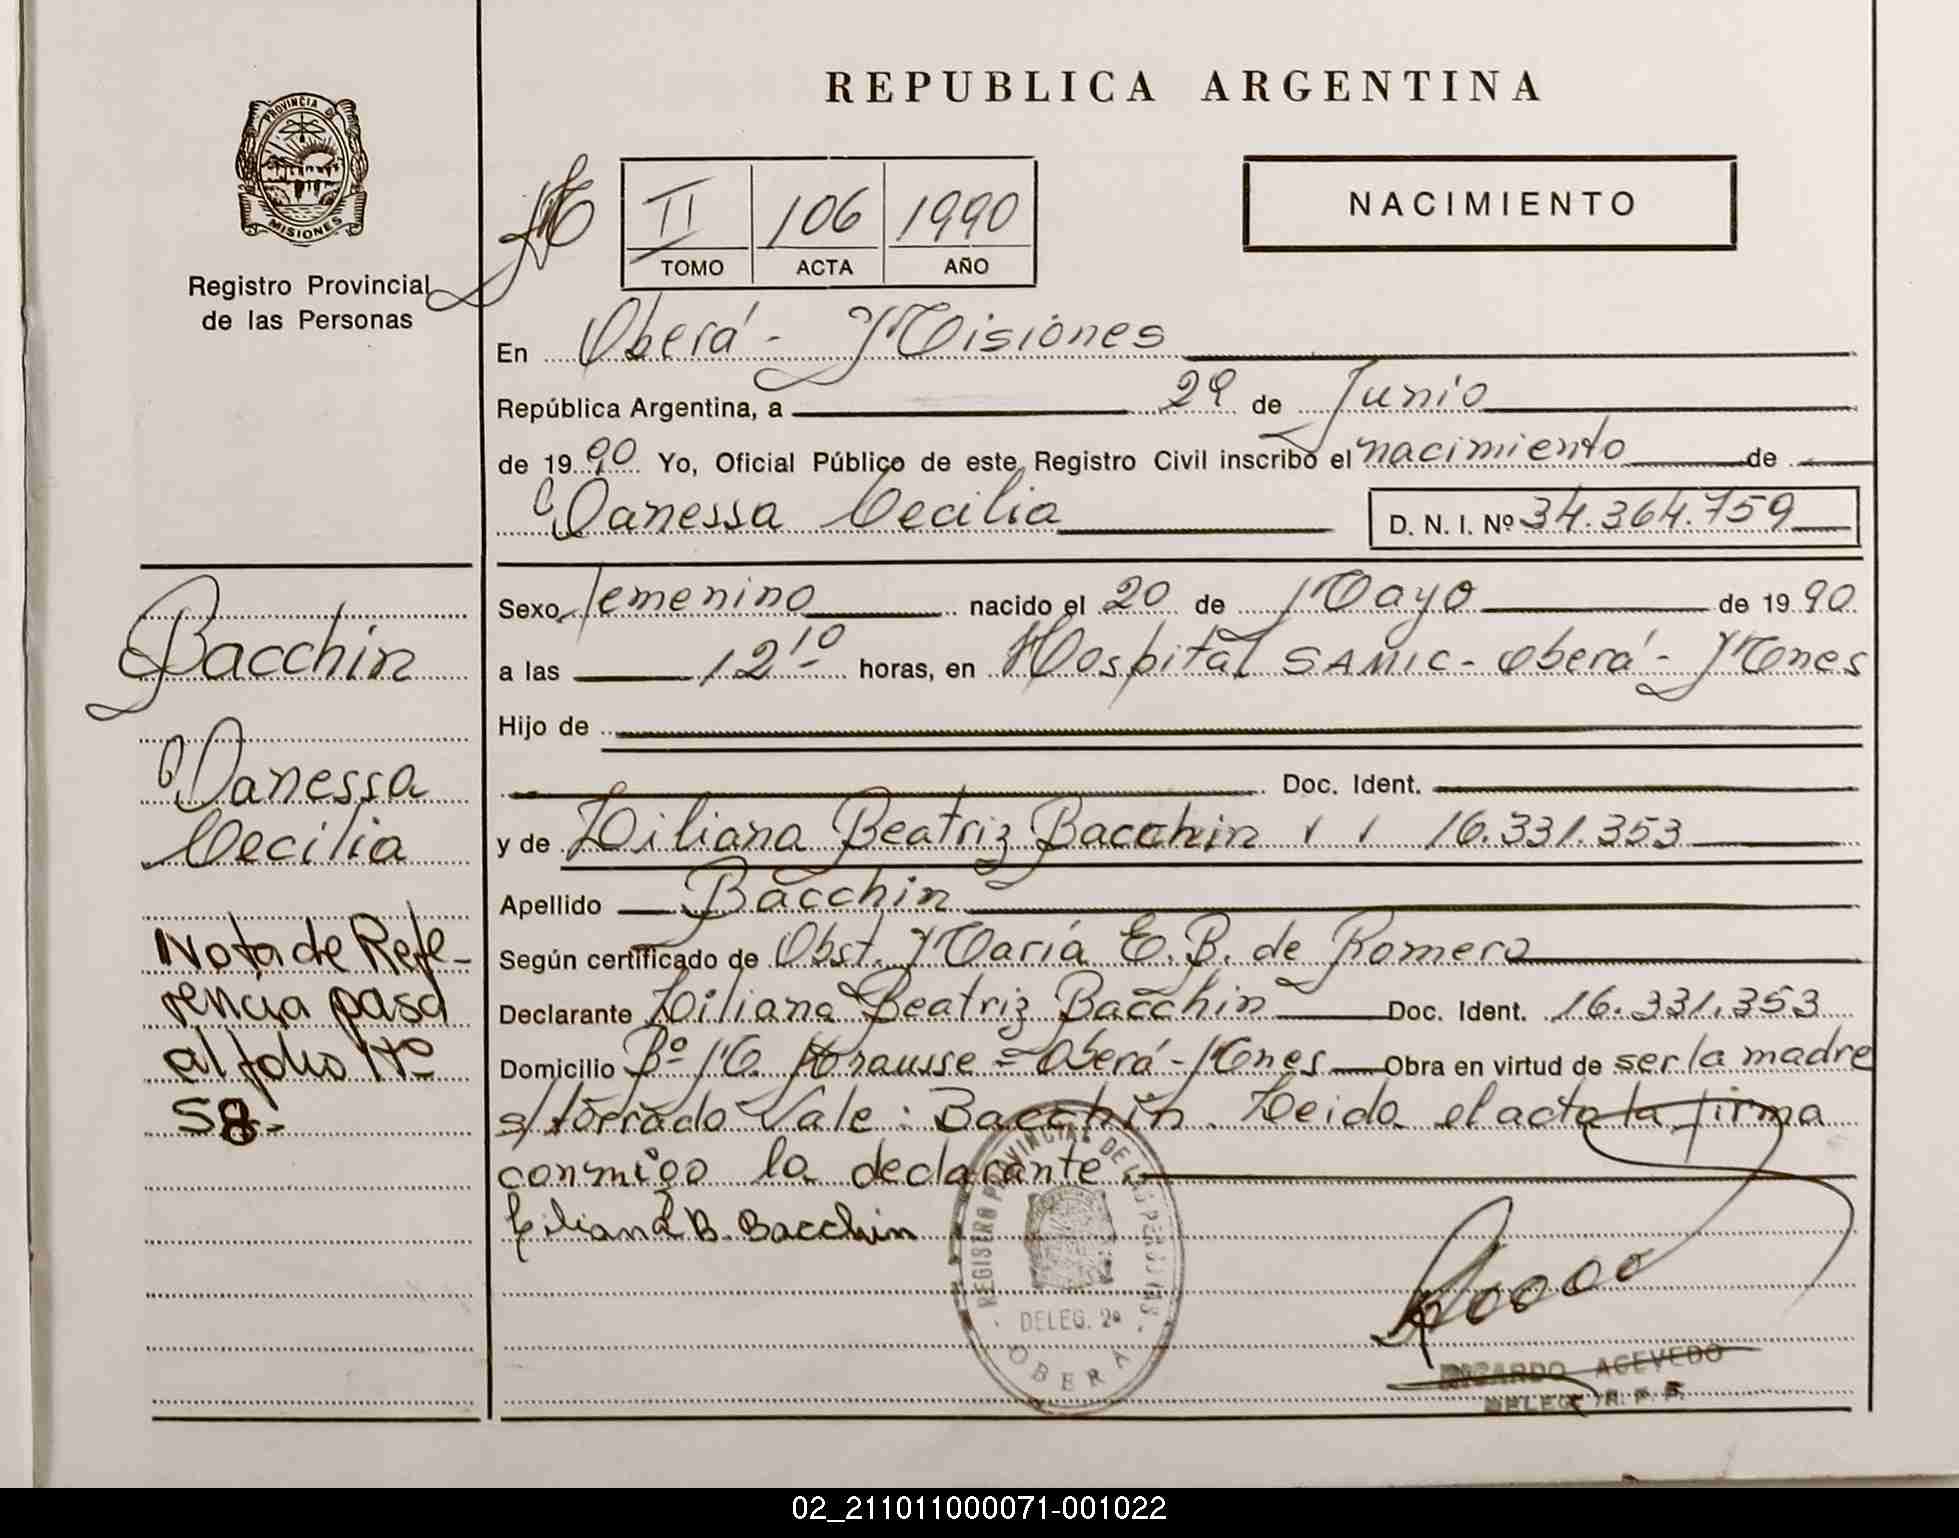 REPUBLICA ARGENTINA
PROVINCIA DE
MISIONES
Registro Provincial
de las Personas
II 106 1990
TOMO ACTA AÑO
NACIMIENTO
En Oberá - Misiones
República Argentina, a 29 de Junio
de 1990 Yo, Oficial Público de este Registro Civil inscribo el nacimiento de
Vanessa Cecilia D. N. I. Nº 34.364.759
Sexo femenino nacido el 20 de Mayo de 1990
a las 12 10 horas, en Hospital SAMIC - Oberá - Mones
Hijo de
Doc. Ident.
y de Liliana Beatriz Bacchin 16.331.353
Apellido Bacchin
Según certificado de Obst. María E. B. de Romero
Declarante Liliana Beatriz Bacchin Doc. Ident. 16.331.353
Domicilio Bº M. Krausse = Oberá - Mones Obra en virtud de ser la madre
s/ borrado Vale: Bacchin. Leida el acta la firma
conmigo la declarante.
Liliana B. Bacchin
REGISTRO PROVINCIAL DE LAS PERSONAS
DELEG. 2ª
OBERA
RICARDO ACEVEDO
DELEG. R. P. P.
Bacchin
Vanessa
Cecilia
Nota de Refe-
rencia pasa
al folio Nº
58-
02_211011000071-001022